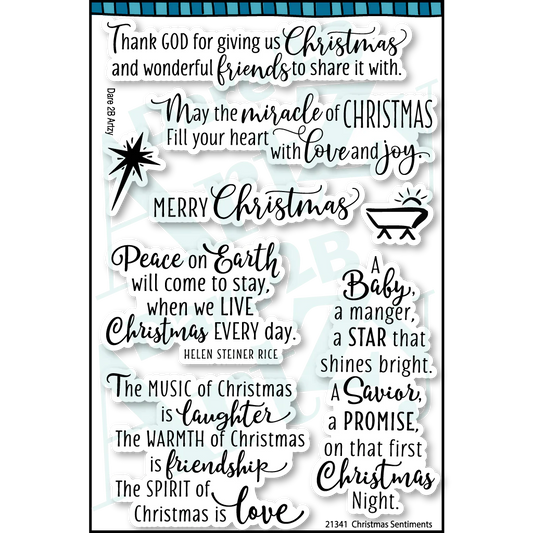 Thank GOD for giving us Christmas
and wonderful friends to share it with.
Dare 2B Artzy
May the miracle of CHRISTMAS
Fill your heart with love and joy.
MERRY Christmas
Peace on Earth
will come to stay,
when we LIVE
Christmas EVERY day.
HELEN STEINER RICE
A
Baby,
a manger,
a STAR that
shines bright.
A Savior,
a PROMISE,
on that first
Christmas
Night.
The MUSIC of Christmas
is laughter
The WARMTH of Christmas
is friendship
The SPIRIT of
Christmas is love
21341 Christmas Sentiments